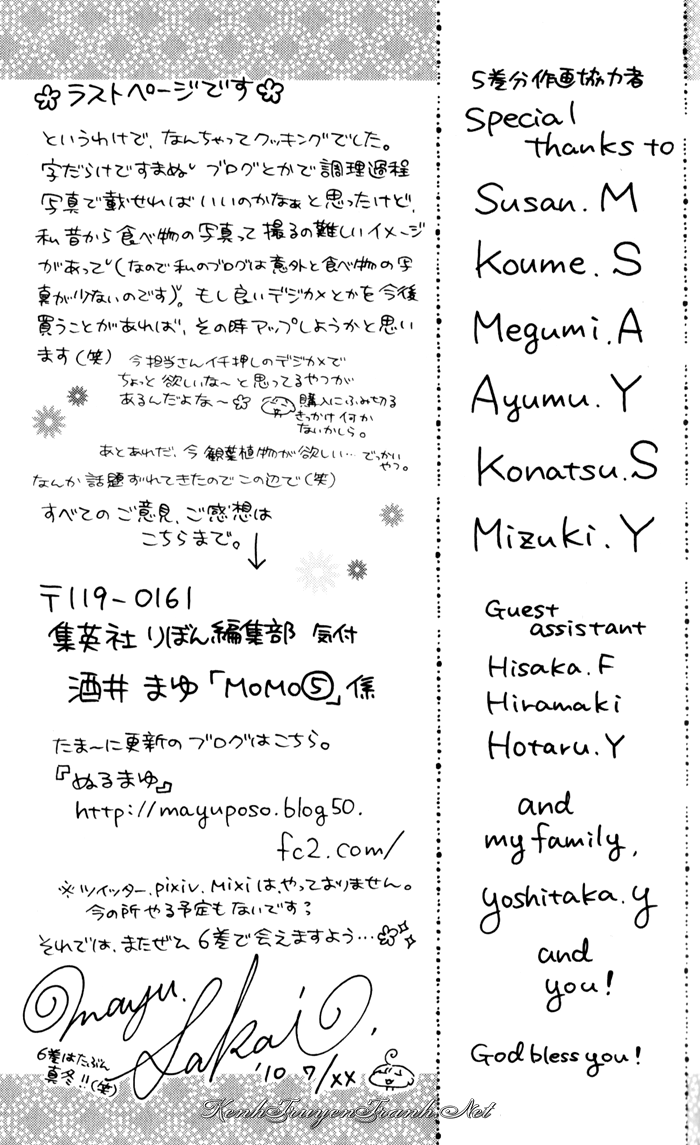 ラストページです
というわけで、なんちゃってクッキングでした。
字だらけですまぬ ブログとかで調理過程
写真で載せればいいのかなぁと思ったけど、
私昔から食べ物の写真って撮るの難しいイメージ
があって(なので私のブログは意外と食べ物の写
真が少ないのです)。もし良いデジカメとかを今後
買うことがあれば、その時アップしようかと思い
ます(笑)
今担当さんイチ押しのデジカメで
ちょっと欲しいな〜と思ってるやつが
あるんだよな〜
購入にふみ切る
きっかけ何か
ないかしら。
あとあれだ、今観葉植物が欲しい…でっかい
やつ。
なんか話題ずれてきたのでこの辺で(笑)
すべてのご意見、ご感想は
こちらまで。↓
〒119-0161
集英社りぼん編集部 気付
酒井まゆ「MOMO⑤」係
たま〜に更新のブログはこちら。
『ぬるまゆ』
http://mayuposo.blog50.
fc2.com/
※ツイッター、pixiv、mixiは、やっておりません。
今の所やる予定もないです?
それでは、またぜひ6巻で会えますよう…
mayu.
Sakai.
'10 7/XX
6巻はたぶん
真冬!!(笑)
5巻分作画協力者
Special
thanks to
Susan. M
Koume. S
Megumi. A
Ayumu. Y
Konatsu. S
Mizuki. Y
Guest
assistant
Hisaka. F
Hiramaki
Hotaru. Y
and
my family,
yoshitaka. y
and
you!
God bless you!
KenhTruyenTranh.Net